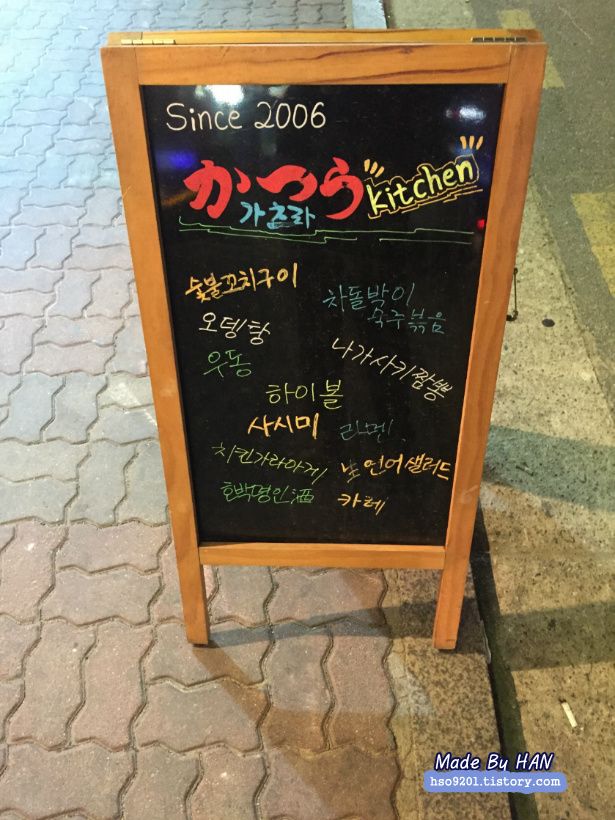 Since 2006
かつら kitchen
가츠라
숯불꼬치구이
차돌박이
숙주볶음
오뎅탕
우동
나가사키짬뽕
하이볼
사시미
라멘!
치킨가라아게
生연어샐러드
호박명인酒
카레
Made By HAN
hso9201.tistory.com